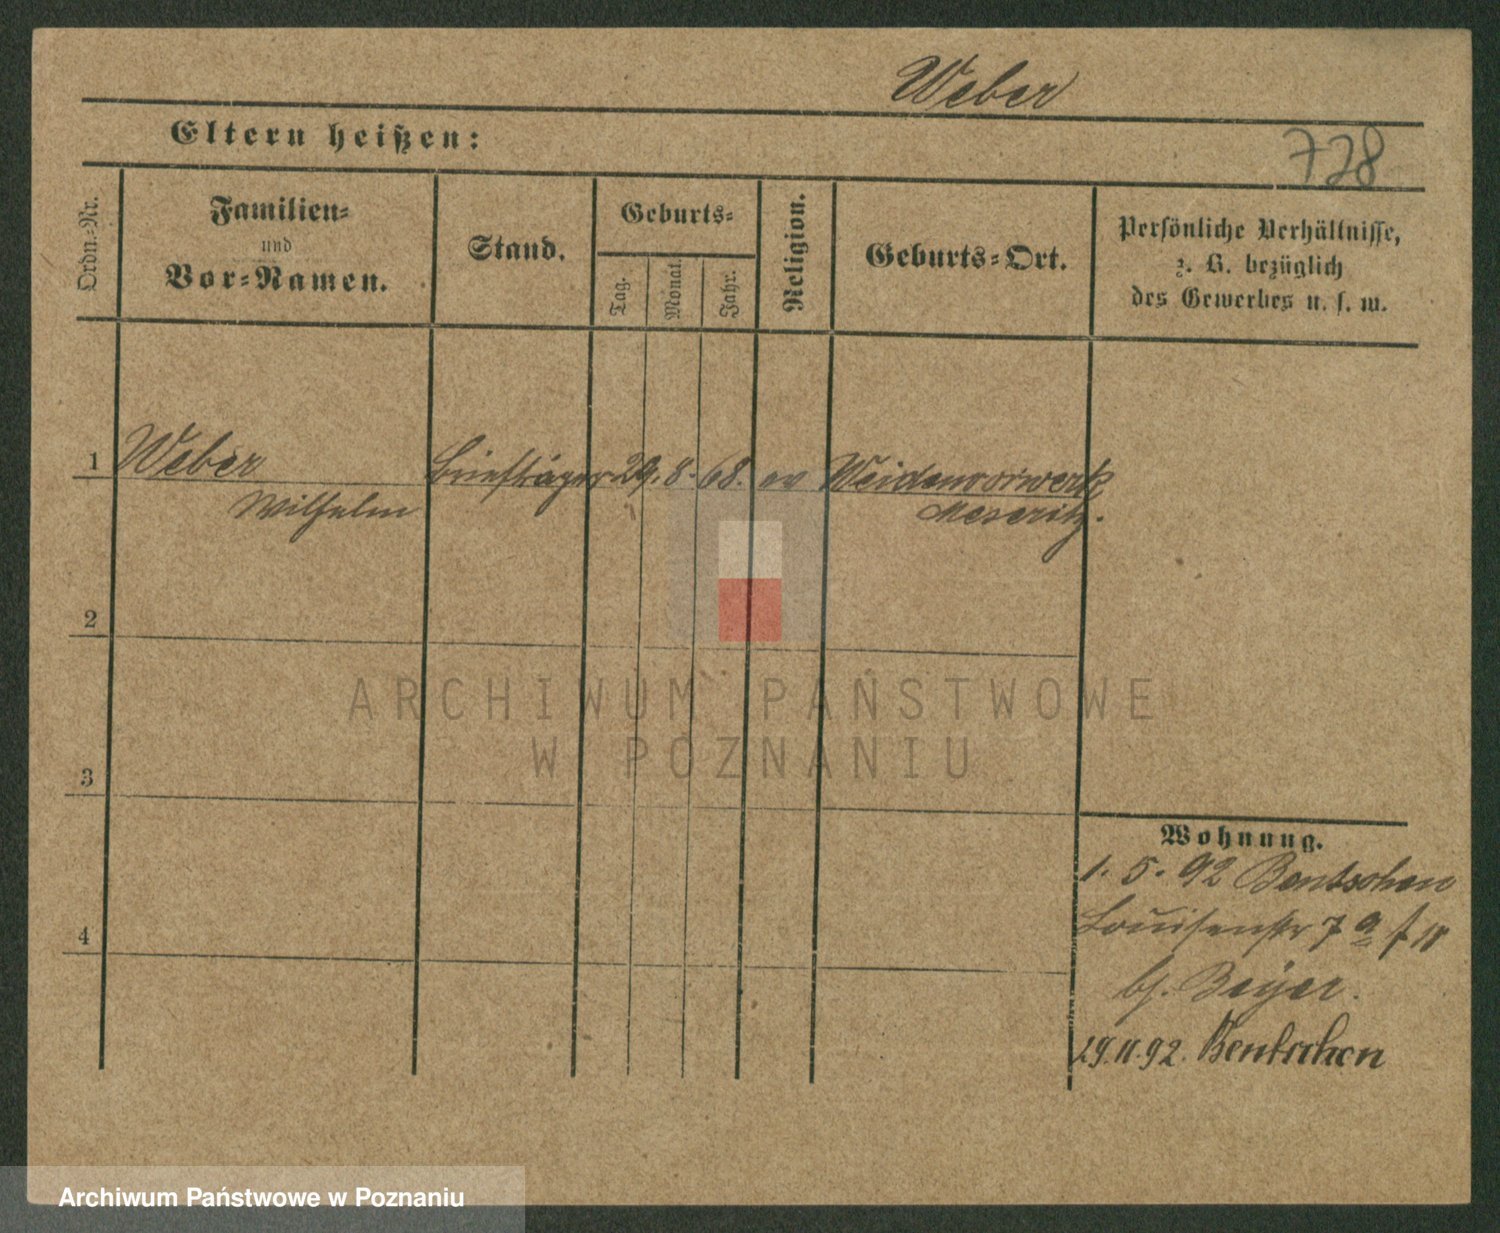 Weber
Eltern heißen:
728
Ordn.-Nr.
Familien-
und
Vor-Namen.
Stand.
Geburts-
Tag.
Monat.
Jahr.
Religion.
Geburts-Ort.
Persönliche Verhältnisse,
z. B. bezüglich
des Gewerbes u. s. w.
1 Weber Briefträger 29. 8. 68. ev Weidenvorwerk
Wilhelm Meseritz.
2
3
4
Wohnung.
1. 5. 92 Bentschen
Louisenstr 7 a
b/. Beyer.
29.11.92. Bentschen
ARCHIWUM PAŃSTWOWE
W POZNANIU
Archiwum Państwowe w Poznaniu